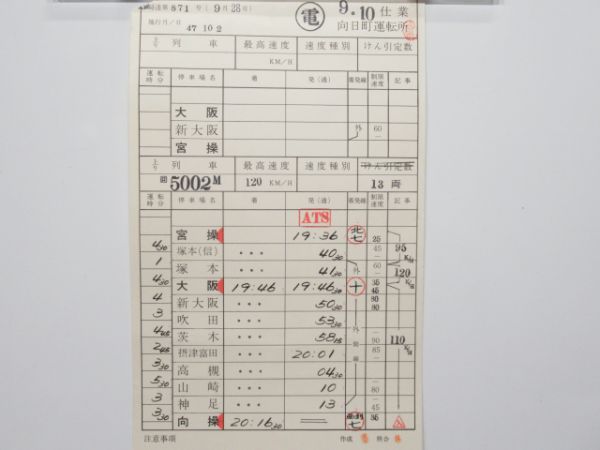 871号(9月28日)
電
9.10仕業
施行月/日 47 10 2
向日町運転所
上り 列車 最高速度 速度種別 けん引定数
KM/H
運転時分 停車場名 着 発(通) 着発線 制限速度 記事
大阪
新大阪 外 60
宮操
上り 列車 最高速度 速度種別 けん引定数
回 5002M 120 KM/H 13両
ATS
宮操 19:36 北七 25
4 30 塚本(信) ・・・ 40 30 45 95
1 塚本 ・・・ 41 30 外 60 120
4 30 大阪 19:46 19:46 30 十 35 45
4 新大阪 ・・・ 50 30 80 80
3 吹田 ・・・ 53 30
4 45 茨木 ・・・ 58 15 外 90 110
2 45 摂津富田 ・・・ 20:01 側 85
3 30 高槻 ・・・ 04 30 線
5 30 山崎 ・・・ 10 80
3 神足 ・・・ 13 45
3 30 向操 20:16 30 七 35
注意事項 作成 照合